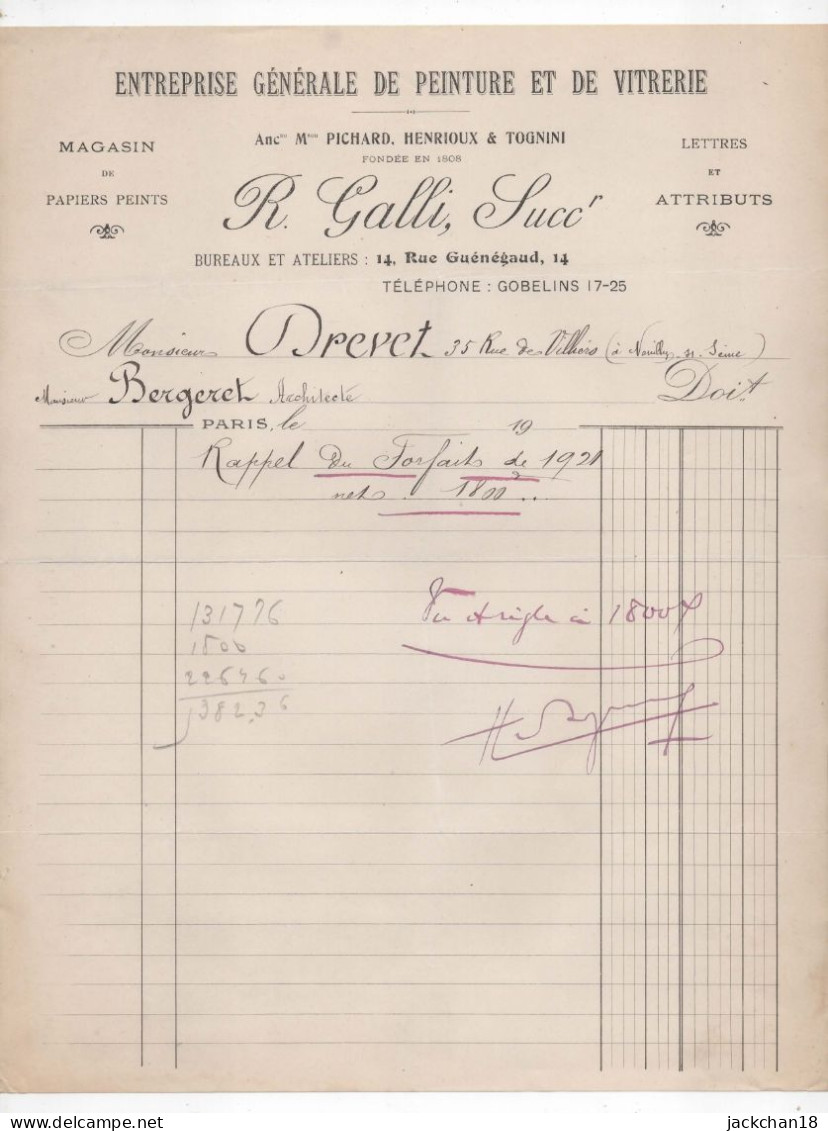 ENTREPRISE GÉNÉRALE DE PEINTURE ET DE VITRERIE
Ancne Mson PICHARD, HENRIOUX & TOGNINI
FONDÉE EN 1808
MAGASIN
DE
PAPIERS PEINTS
LETTRES
ET
ATTRIBUTS
R. Galli, Succr
BUREAUX ET ATELIERS : 14, Rue Guénégaud, 14
TÉLÉPHONE : GOBELINS 17-25
Monsieur Drevet 35 Rue de Villiers (à Neuilly sr Seine)
Monsieur Bergeret Architecte Doit
PARIS, le 19
Rappel Du Forfait de 1921
net 1800
131776
1800
Vu et réglé à 1800
22676
138236
jackchan18